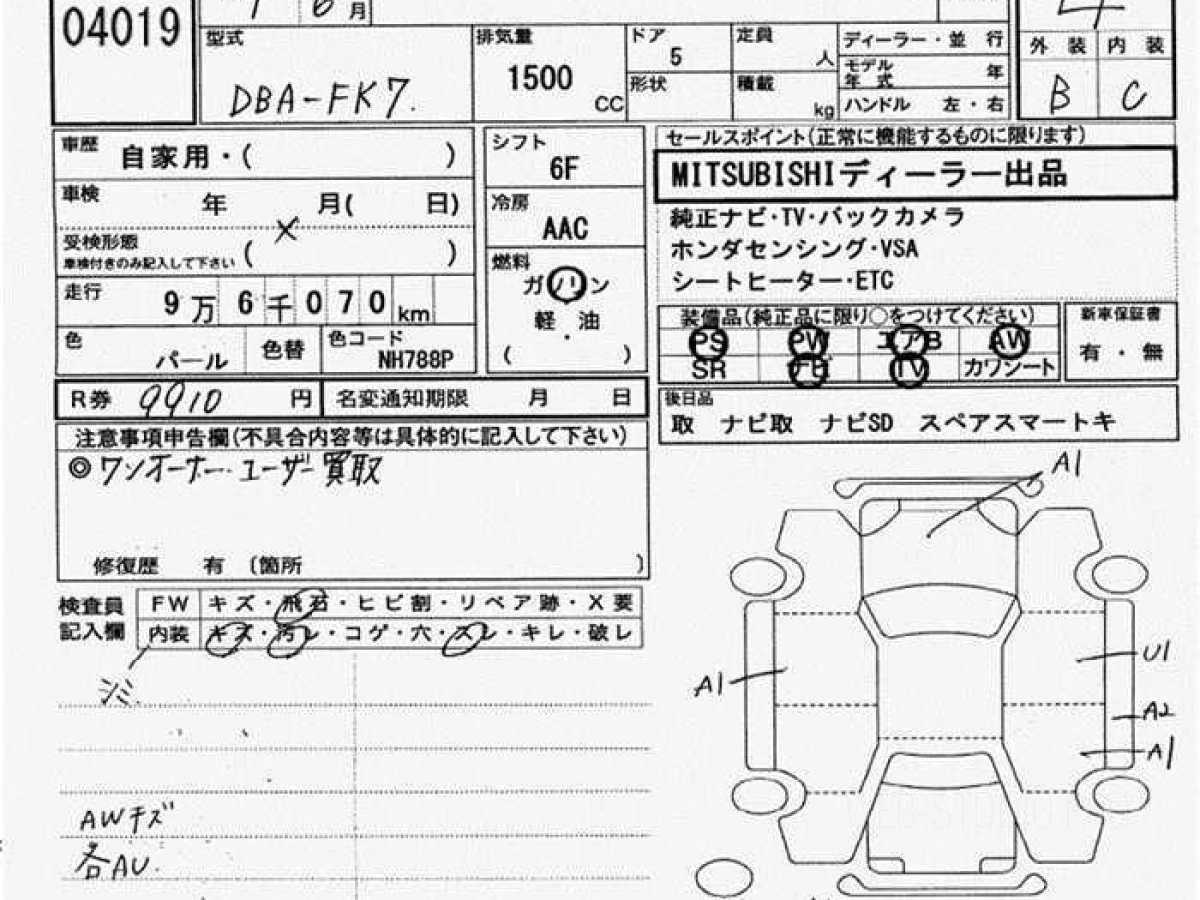 04019
6月
4
型式
DBA-FK7.
排気量
1500
CC
ドア
5
形状
定員
人
積載
kg
ディーラー・並 行
モデル
年 式 年
ハンドル 左・右
外 装 内 装
B C
車歴 自家用・( )
車検 年 月( 日)
×
受検形態
車検付きのみ記入して下さい ( )
走行 9万6千070km
色 パール 色替 色コード NH788P
シフト
6F
冷房
AAC
燃料
ガソリン
・
軽 油
・
( )
セールスポイント(正常に機能するものに限ります)
MITSUBISHIディーラー出品
純正ナビ・TV・バックカメラ
ホンダセンシング・VSA
シートヒーター・ETC
装備品(純正品に限り○をつけてください)
PS PW エアB AW
SR ナビ TV カワシート
新車保証書
有 ・ 無
R券 9910 円 名変通知期限 月 日
後日品
取 ナビ取 ナビSD スペアスマートキ
注意事項申告欄(不具合内容等は具体的に記入して下さい)
◎ワンオーナー ユーザー買取
修復歴 有 〔箇所 〕
検査員
記入欄
FW キズ・飛石・ヒビ割・リペア跡・X要
内装 キズ・汚レ・コゲ・穴・スレ・キレ・破レ
シミ
AWキズ
各AU.
A1
A1
U1
A2
A1